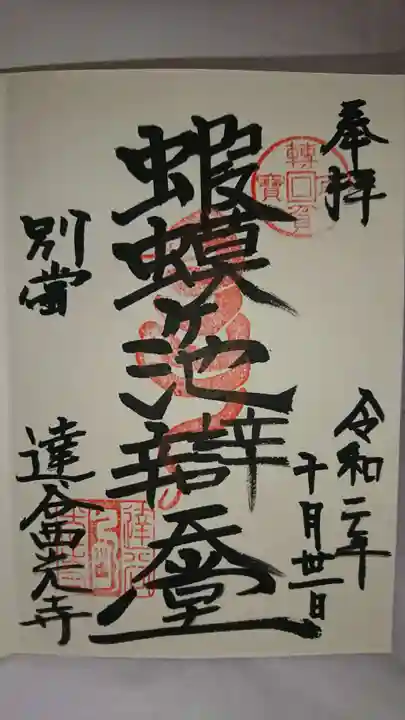 奉拝
令和二年
十月丗一日
蝦蟆池辯天堂
別當
達谷西光寺